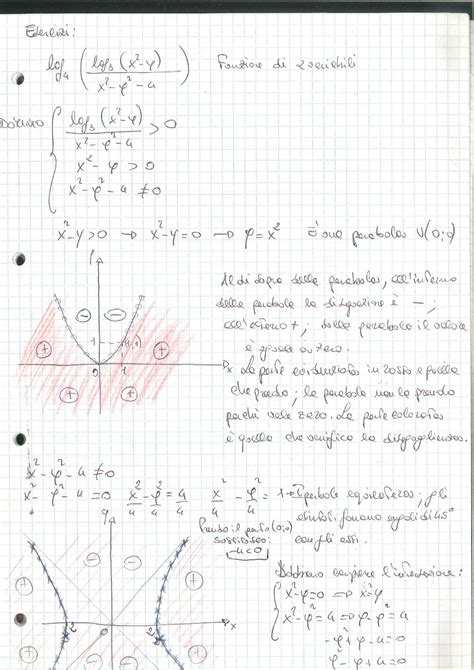 Esercizi:
log₄ (log₃ (x²-y) / x²-y²-4) Funzione di 2 variabili
Dominio { log₃ (x²-y) / x²-y²-4 > 0
x²-y > 0
x²-y²-4 ≠ 0
x²-y>0 → x²-y=0 → y=x² È una parabola V(0;0)
y
Al di sopra della parabola, all'interno
della parabola la disequazione è -;
all'esterno +; sulla parabola il valore
è uguale a zero.
- - + + + +
1 (1,1)
0 1 x
La parte evidenziata in rosso è quella
che prendo; la parabola non la prendo
perché vale zero. La parte colorata
è quella che verifica la disuguaglianza.
x²-y²-4 ≠ 0
x²-y²-4=0 x²/4-y²/4=4/4 x²/4-y²/4=1 → Iperbole equilatera, gli
asintoti formano angoli di 45°
con gli assi.
y
Prendo il punto (0;0)
sostituisco:
-4<0
- - + + + +
-2 0 2 x
Dobbiamo conoscere l'intersezione:
{ x²-y=0 ⇒ x²=y
x²-y²-4=0 ⇒ y-y²-4=0
-y²+y-4=0
y²-y+4=0